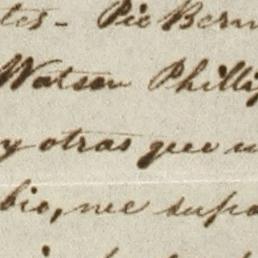 tes- Pio Bern
Watson Philli
y otras que u
bio, me supo